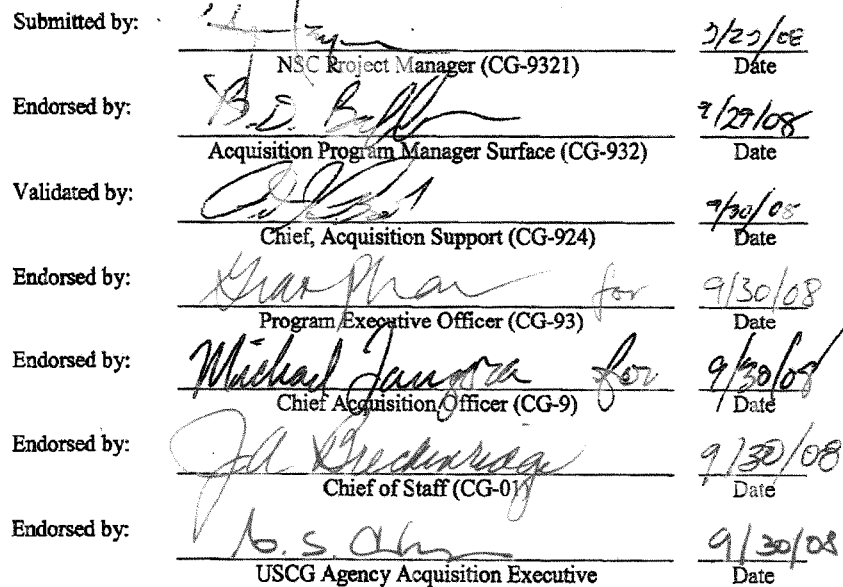 Submitted by:
NSC Project Manager (CG-9321)
Date
Endorsed by:
9/29/08
Acquisition Program Manager Surface (CG-932)
Date
Validated by:
9/30/08
Chief, Acquisition Support (CG-924)
Date
Endorsed by:
for 9/30/08
Program Executive Officer (CG-93)
Date
Endorsed by:
Michael for 9/30/08
Chief Acquisition Officer (CG-9)
Date
Endorsed by:
Breckinridge 9/30/08
Chief of Staff (CG-01)
Date
Endorsed by:
9/30/08
USCG Agency Acquisition Executive
Date